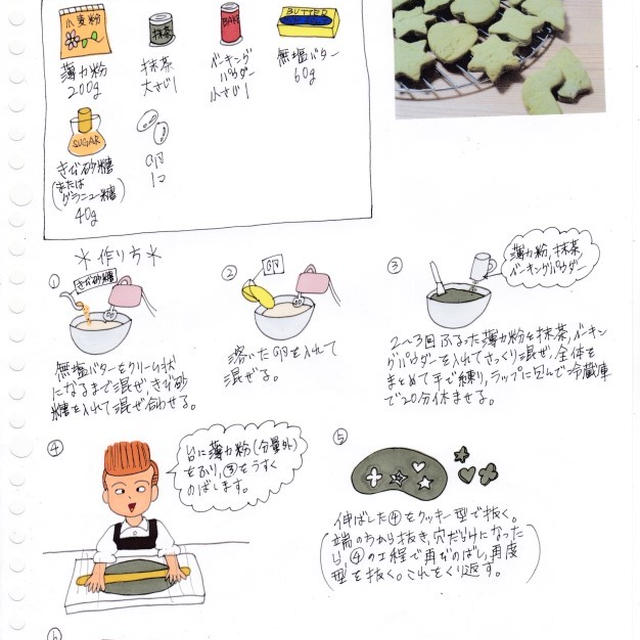 小麦粉
抹茶
BAKE
BUTTER
薄力粉
200g
抹茶
大さじ1
ベーキング
パウダー
小さじ1
無塩バター
60g
SUGAR
きび砂糖
(または
グラニュー糖)
40g
卵
1コ
*作り方*
①
きび砂糖
無塩バターをクリーム状
になるまで混ぜ、きび砂
糖を入れて混ぜ合わせる。
②
卵
溶いた卵を入れて
混ぜる。
③
薄力粉、抹茶、
ベーキングパウダー
2〜3回ふるった薄力粉と抹茶、ベーキン
グパウダーを入れてさっくり混ぜ、全体を
まとめて手で練り、ラップに包んで冷蔵庫
で20分休ませる。
④
台に薄力粉(分量外)
をふり、③をうすく
のばします。
⑤
伸ばした④をクッキー型で抜く。
(端の方から抜き、穴だらけになった
ら④の工程で再びのばし、再度
型を抜く。これをくり返す。)